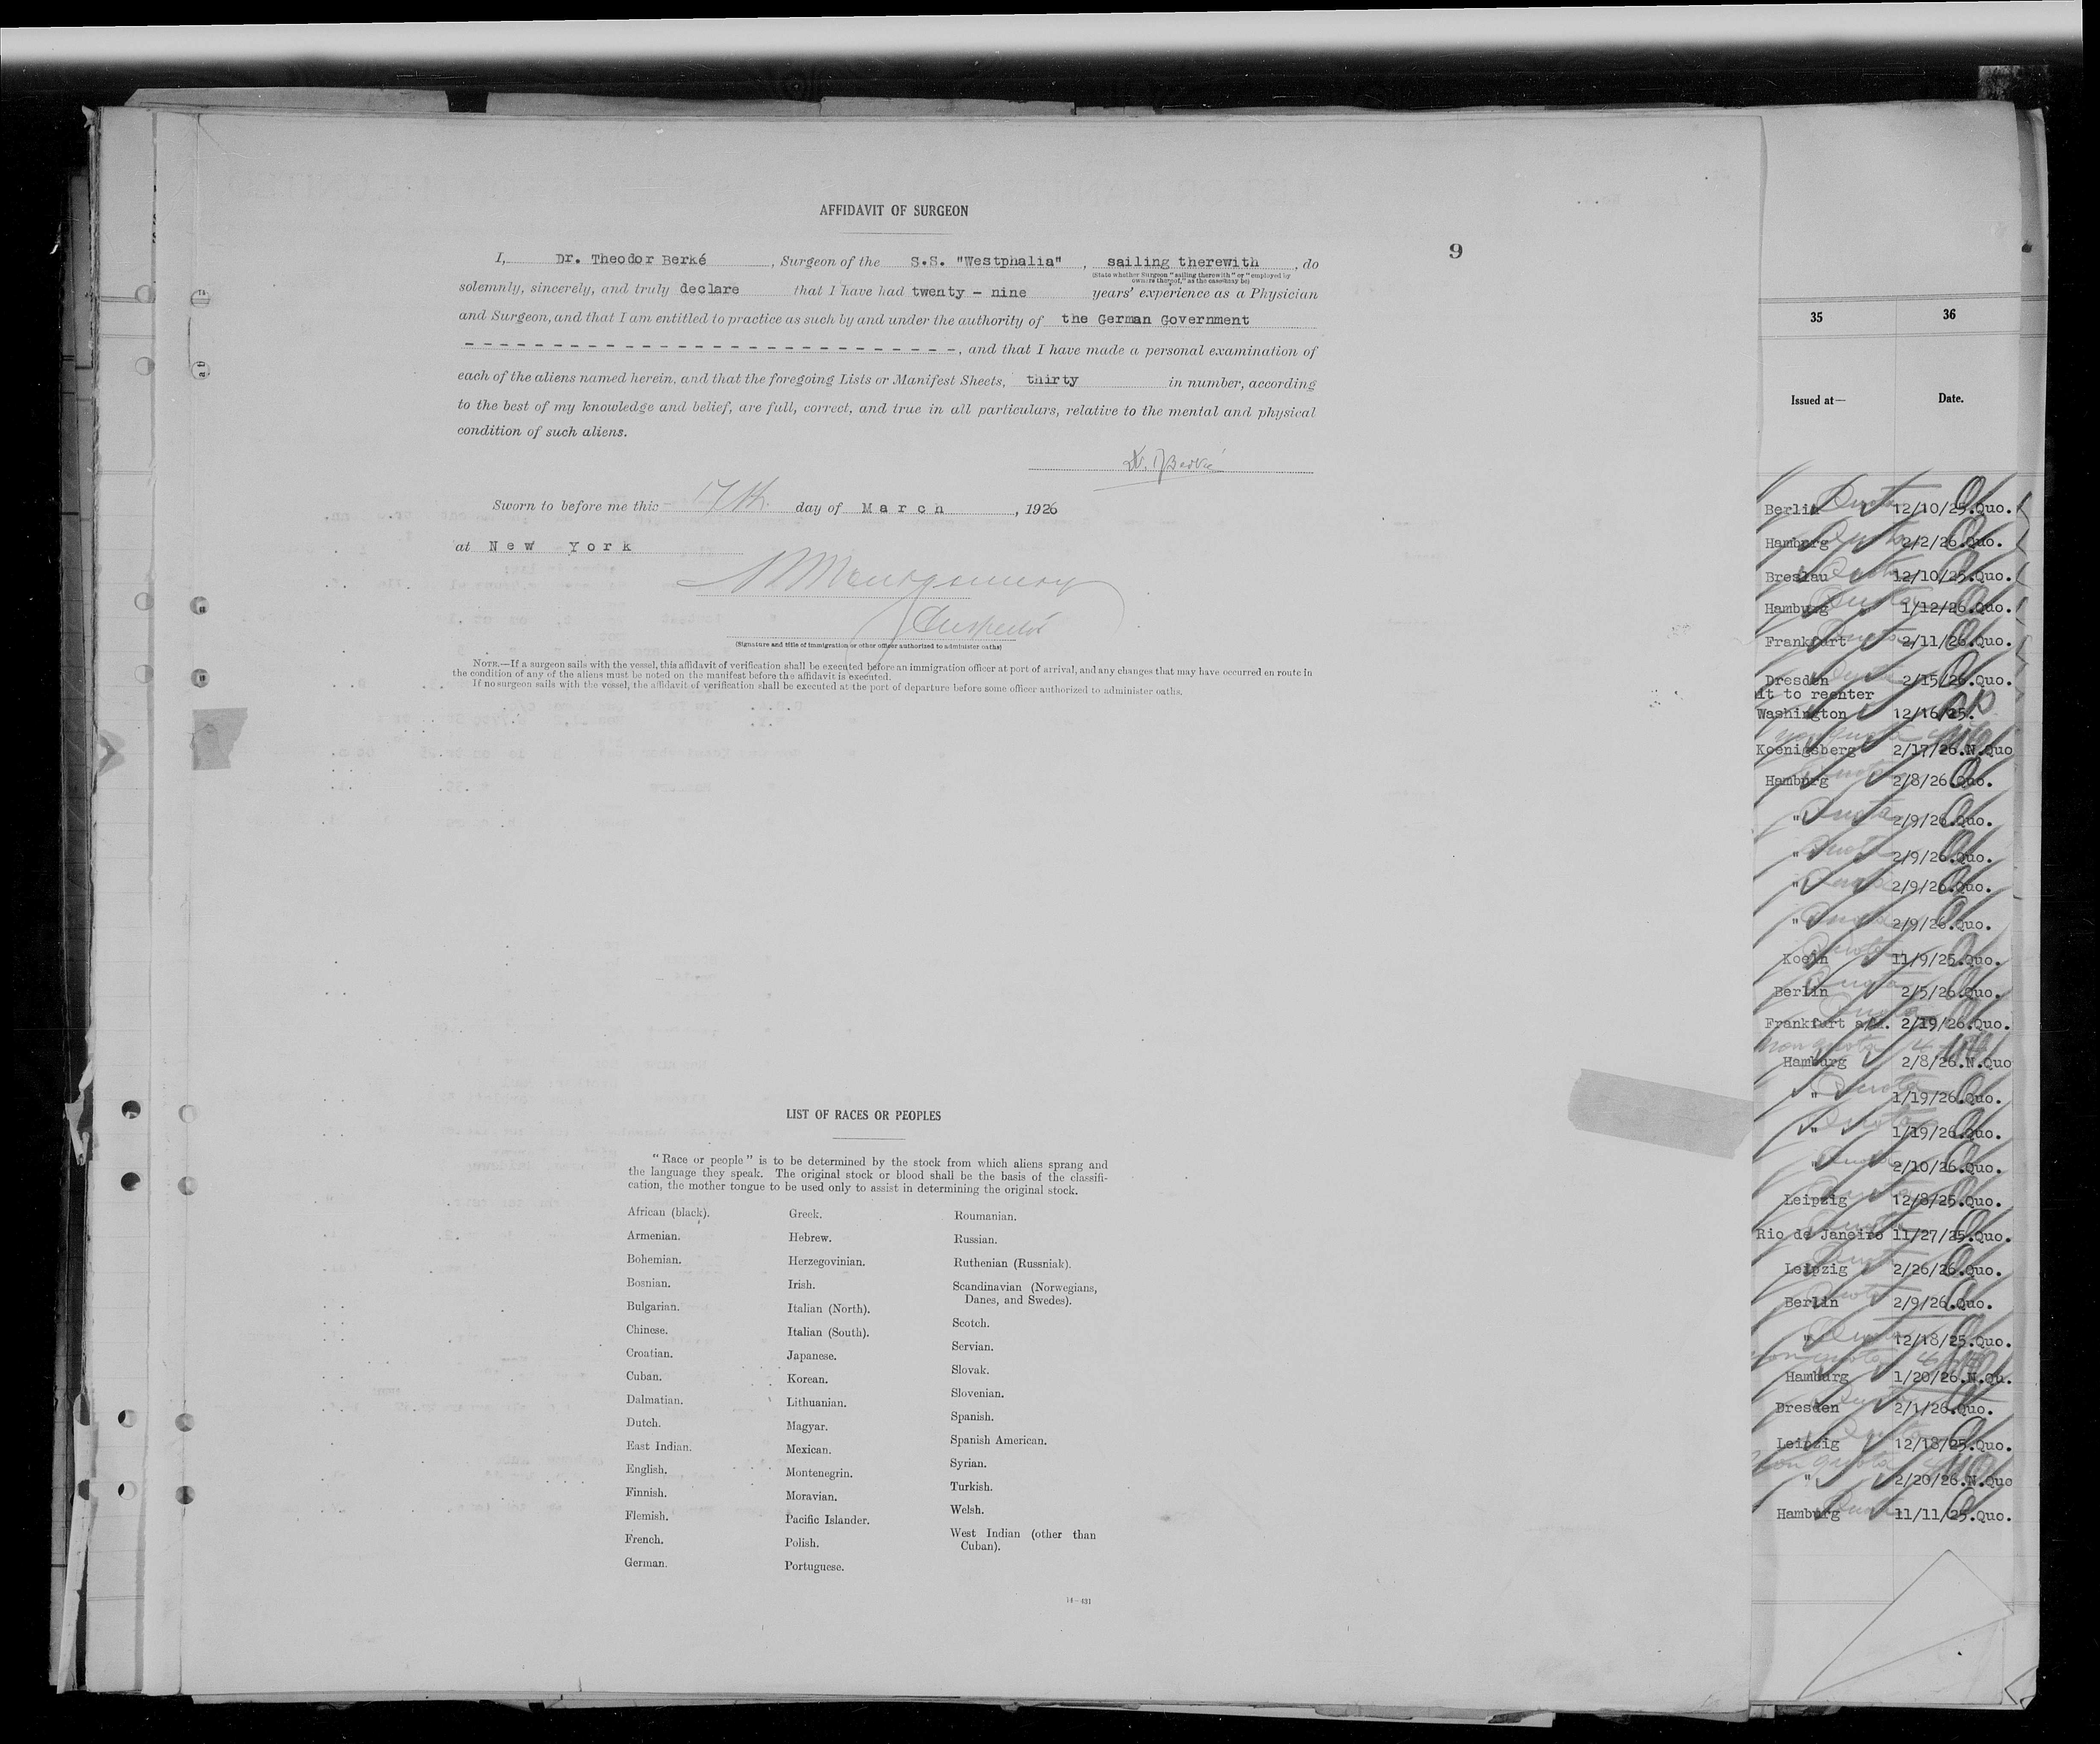 AFFIDAVIT OF SURGEON
9
I, Dr. Theodor Berké, Surgeon of the S.S. "Westphalia", sailing therewith, do
(State whether Surgeon "sailing therewith" or "employed by
owners thereof," as the case may be)
solemnly, sincerely, and truly declare that I have had twenty - nine years' experience as a Physician
and Surgeon, and that I am entitled to practice as such by and under the authority of the German Government
- - - - - - - - - - - - - - - - - - - - - - - - - - - - -, and that I have made a personal examination of
each of the aliens named herein, and that the foregoing Lists or Manifest Sheets, thirty in number, according
to the best of my knowledge and belief, are full, correct, and true in all particulars, relative to the mental and physical
condition of such aliens.
Dr. T Berké
Sworn to before me this 17th. day of March, 1926
at New York
Montgomery
Inspector
(Signature and title of immigration or other officer authorized to administer oaths)
NOTE.—If a surgeon sails with the vessel, this affidavit of verification shall be executed before an immigration officer at port of arrival, and any changes that may have occurred en route in
the condition of any of the aliens must be noted on the manifest before the affidavit is executed.
If no surgeon sails with the vessel, the affidavit of verification shall be executed at the port of departure before some officer authorized to administer oaths.
LIST OF RACES OR PEOPLES
"Race or people" is to be determined by the stock from which aliens sprang and
the language they speak. The original stock or blood shall be the basis of the classifi-
cation, the mother tongue to be used only to assist in determining the original stock.
African (black).
Armenian.
Bohemian.
Bosnian.
Bulgarian.
Chinese.
Croatian.
Cuban.
Dalmatian.
Dutch.
East Indian.
English.
Finnish.
Flemish.
French.
German.
Greek.
Hebrew.
Herzegovinian.
Irish.
Italian (North).
Italian (South).
Japanese.
Korean.
Lithuanian.
Magyar.
Mexican.
Montenegrin.
Moravian.
Pacific Islander.
Polish.
Portuguese.
Roumanian.
Russian.
Ruthenian (Russniak).
Scandinavian (Norwegians,
Danes, and Swedes).
Scotch.
Servian.
Slovak.
Slovenian.
Spanish.
Spanish American.
Syrian.
Turkish.
Welsh.
West Indian (other than
Cuban).
14—431
35 36
Issued at— Date.
Berlin 12/10/25.Quo.
Hamburg 2/2/26.Quo.
Breslau 12/10/25.Quo.
Hamburg 1/12/26.Quo.
Frankfurt 2/11/26.Quo.
Dresden 2/15/26.Quo.
it to reenter
Washington 12/16/25.
Koenigsberg 2/17/26.N.Quo
Hamburg 2/8/26.Quo.
" 2/9/26.Quo.
" 2/9/26.Quo.
" 2/9/26.Quo.
" 2/9/26.Quo.
Koeln 11/9/25.Quo.
Berlin 2/5/26.Quo.
Frankfurt a/M. 2/19/26.Quo.
non quota
Hamburg 2/8/26.N.Quo
" 1/19/26.Quo.
" 1/19/26.Quo.
" 2/10/26.Quo.
Leipzig 12/8/25.Quo.
Rio de Janeiro 11/27/25.Quo.
Leipzig 2/26/26.Quo.
Berlin 2/9/26.Quo.
" 12/18/25.Quo.
non quota
Hamburg 1/20/26.N.Qu.
Dresden 2/1/26.Quo.
Leipzig 12/18/25.Quo.
non quota
" 2/20/26.N.Quo
Hamburg 11/11/25.Quo.